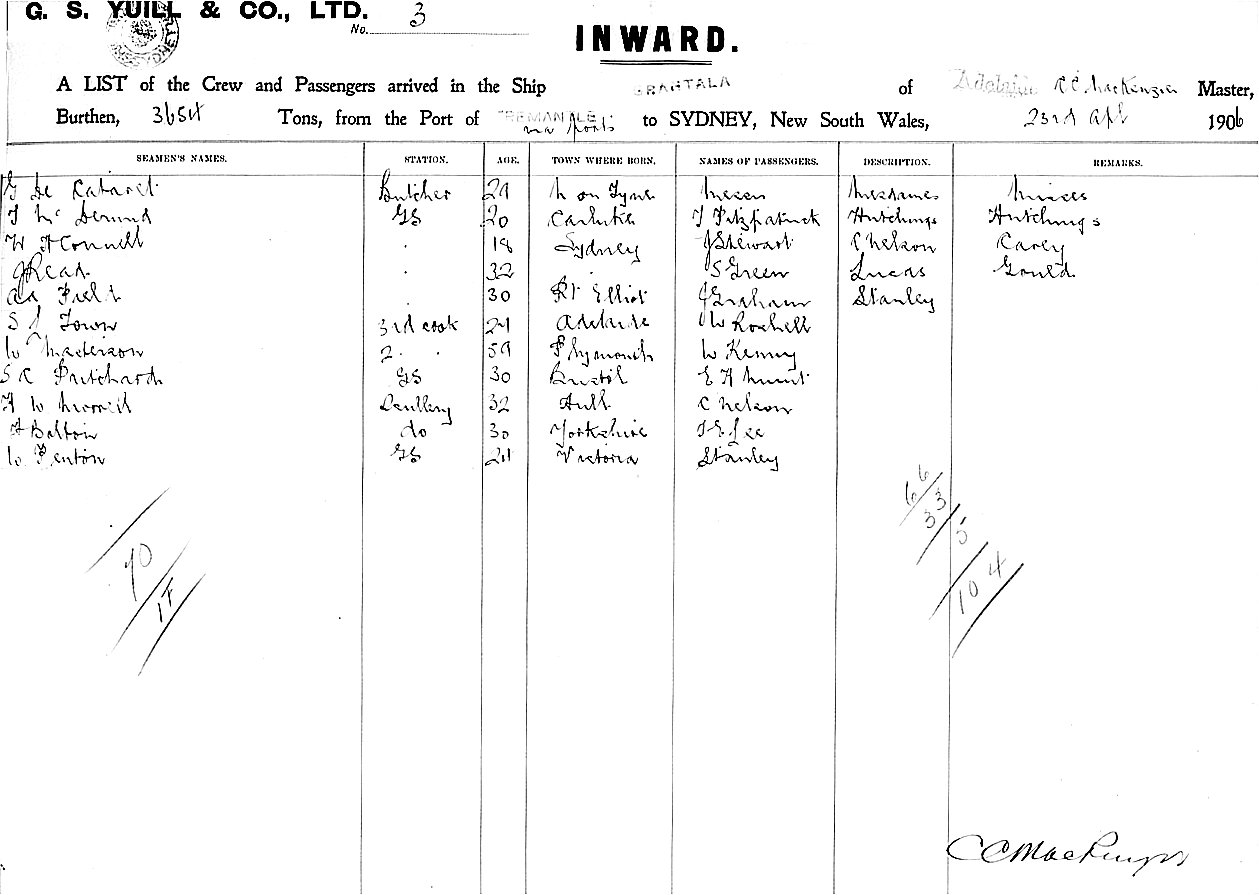 G. S. YUILL & CO., LTD.
No. 3
INWARD.
A LIST of the Crew and Passengers arrived in the Ship GRANTALA of Adelaide CC Mackenzie Master,
Burthen, 3654 Tons, from the Port of FREMANTLE via ports to SYDNEY, New South Wales, 23rd Apl 1906
SEAMEN'S NAMES. STATION. AGE. TOWN WHERE BORN. NAMES OF PASSENGERS. DESCRIPTION. REMARKS.
G De Butcher 29 N on Tyne Messrs Mesdames Misses
T Mc GS 20 Carluke T Fitzpatrick Hutchings Hutchings
W H Connell . 18 Sydney J Stewart C Nelson Carey
J Read . 32 . S Green Lucas Gould
Field . 30 Pt Elliot J Graham Stanley
S J Town 3rd cook 24 Adelaide W
W Masterson 2 . . 59 Plymouth W Kenny
S R Pritchard GS 30 Bristol E A Hunt
W 32 Hull C Nelson
H Bolton do 30 Yorkshire Lee
W Penton GS 24 Victoria Stanley
66
33
5
104
70
17
CC Mackenzie